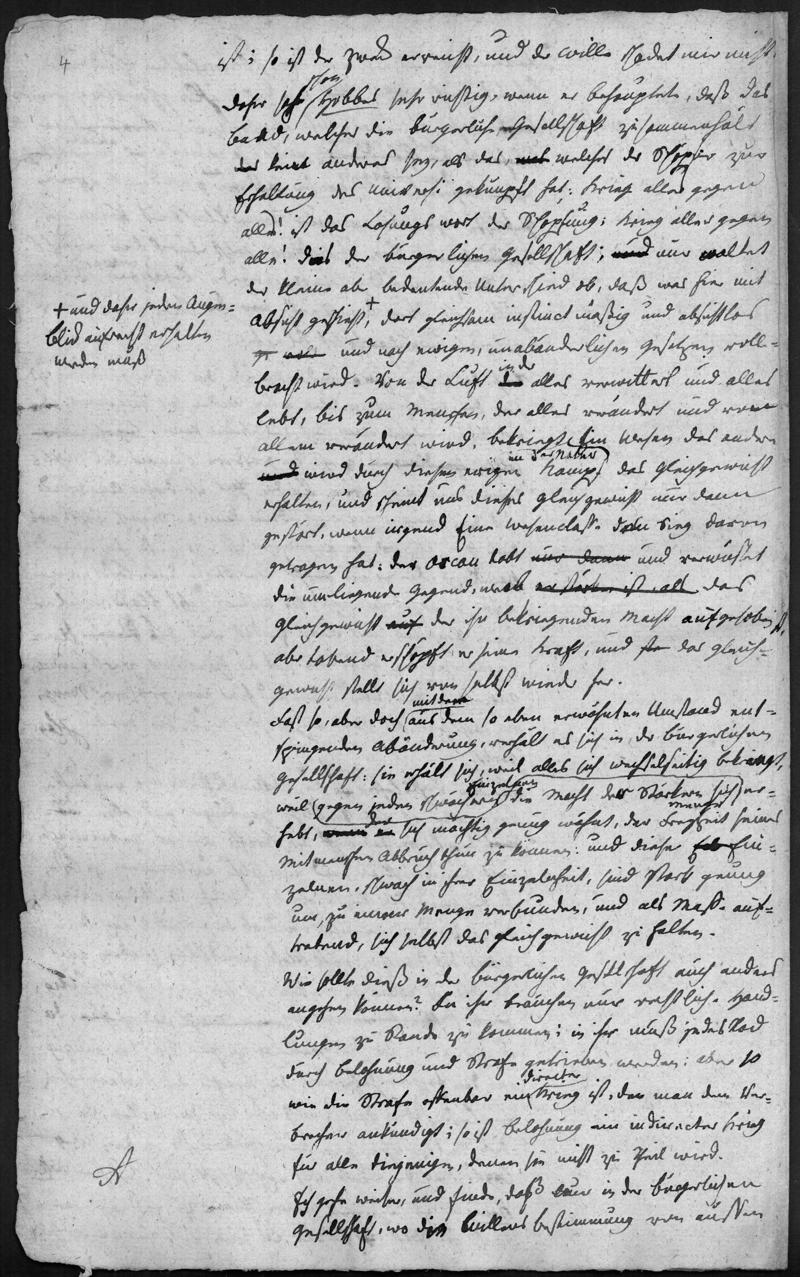 4
ist; so ist der Zweck erreicht, und der Wille schadet mir nicht.
schon
Daher sah Hobbes sehr richtig, wenn er behauptete, daß das
Band, welches die bürgerliche Gesellschaft zusammenhält
kein anderes sey, als das, welches der Schöpfer zur
Erhaltung des Universi geknüpft hat: Krieg aller gegen
alle! ist das Losungswort der Schöpfung: Krieg aller gegen
alle! dies der bürgerlichen Gesellschaft; und nur waltet
der kleine aber bedeutende Unterschied ob, daß was hier mit
Absicht geschieht,+ dort gleichsam instinctmäßig und absichtlos
+ und daher jeden Augen=
blick aufrecht erhalten
werden muß
und nach ewigen, unabänderlichen Gesetzen voll=
bracht wird. Von der Luft in der alles verwittert und alles
lebt, bis zum Menschen, der alles verändert und von
allem verändert wird, bekriegt Ein Wesen das andere
in der Natur
und wird durch diesen ewigen Kampf das Gleichgewicht
erhalten, und scheint uns dieses Gleichgewicht nur dann
gestört, wenn irgend Eine Wesenclasse den Sieg davon
getragen hat: der Ocean tobt nur dann und verwüstet
die umliegende Gegend, weil er stärker ist, als das
Gleichgewicht auf der ihn bekriegenden Macht aufgehoben ist,
aber tobend erschöpft er seine Kraft, und das Gleich=
gewicht stellt sich von selbst wieder her.
mit dem
Fast so, aber doch aus dem so eben erwähnten Umstand ent=
springenden Abänderung, verhält es sich in der bürgerlichen
Gesellschaft: sie erhält sich, weil alles sich wechselseitig bekriegt,
einzelnen
weil gegen jeden Schwächern die Macht des Stärkern sich er=
hebt, der sich mächtig genug wähnt, der Freyheit seiner
Mitmenschen Abbruch thun zu können: und diese Ein=
zelnen, schwach in ihrer Einzelnheit, sind stark genug
um, zu einer Menge verbunden, und als Masse auf=
tretend, sich selbst das Gleichgewicht zu halten.
Wie sollte dieß in der bürgerlichen Gesellschaft auch anders
angehen können? In ihr brauchen nur rechtliche Hand=
lungen zu Stande zu kommen; in ihr muß jedes Rad
durch Belohnung und Strafe getrieben werden: aber so
directer
wie die Strafe offenbar ein Krieg ist, den man dem Ver=
brecher ankündigt; so ist Belohnung ein indirecter Krieg
für alle diejenigen, denen sie nicht zu Theil wird.
Ich gehe weiter, und finde, daß nur in der bürgerlichen
Gesellschaft, wo die Willensbestimmung von aussen
A